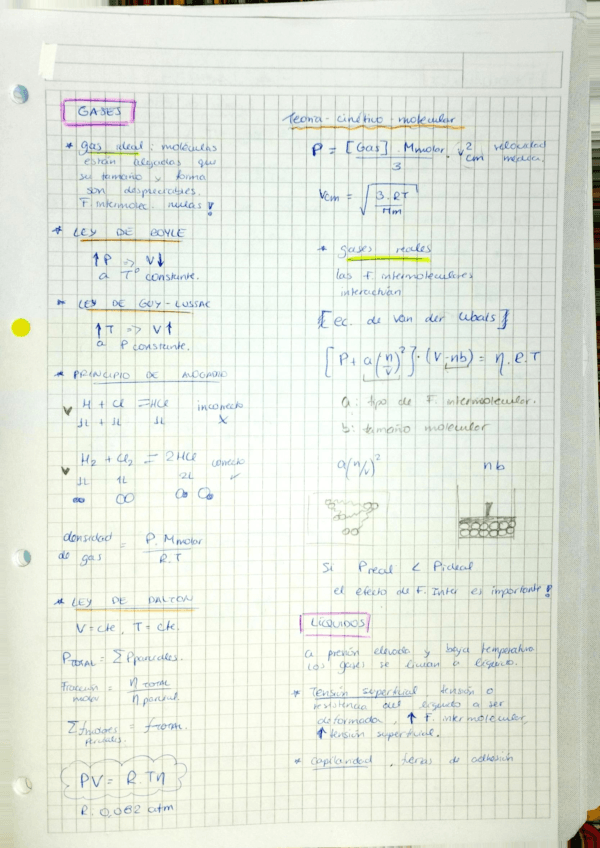 GASES
* gas ideal : moléculas
están alejadas que
su tamaño y forma
son despreciables.
F. intermolec. nulas!
* LEY DE BOYLE
↑P => V↓
a Tº constante.
* LEY DE GUY-LUSSAC
↑T => V↑
a P constante.
* PRINCIPIO DE
H + Cl = HCl incorrecto
1L + 1L 1L X
H2 + Cl2 = 2HCl correcto
1L 1L 2L ✓
densidad de gas = P. Mmolar / R.T
* LEY DE DALTON
V = cte, T = cte.
PTOTAL = Σ Pparciales.
Fracción molar = n TOTAL / n parcial.
Σ fmolares parciales. = fTOTAL.
PV = R.Tn
R: 0,082 atm
Teoría-cinético-molecular
P = [Gas] . Mmolar / 3 . v²cm velocidad media.
Vcm = √ 3.RT / Mm
* gases reales
las F. intermoleculares
interactúan
[ec. de Van der Waals]
[P + a(n/v)²] · (V - nb) = n.R.T
a: tipo de F. intermolecular.
b: tamaño molecular
a(n/v)² nb
Si Preal < Pideal
el efecto de F. Inter es importante!
LÍQUIDOS
a presión elevada y baja temperatura
los gases se licuan a líquido.
* Tensión superficial, tensión o
resistencia del líquido a ser
deformada, ↑ F. intermolecular,
↑ tensión superficial.
* Capilaridad, de adhesión